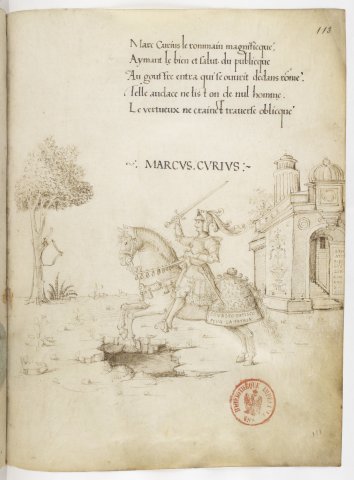 113
Marc Curius le rommain magnificque
Aymant le bien et salut du publicque
Au gouffre entra qui se ouvrit dedans rome
Telle audace ne list on de nul homme.
Le vertueux ne craindt traverse oblicque
MARCVS. CVRIVS